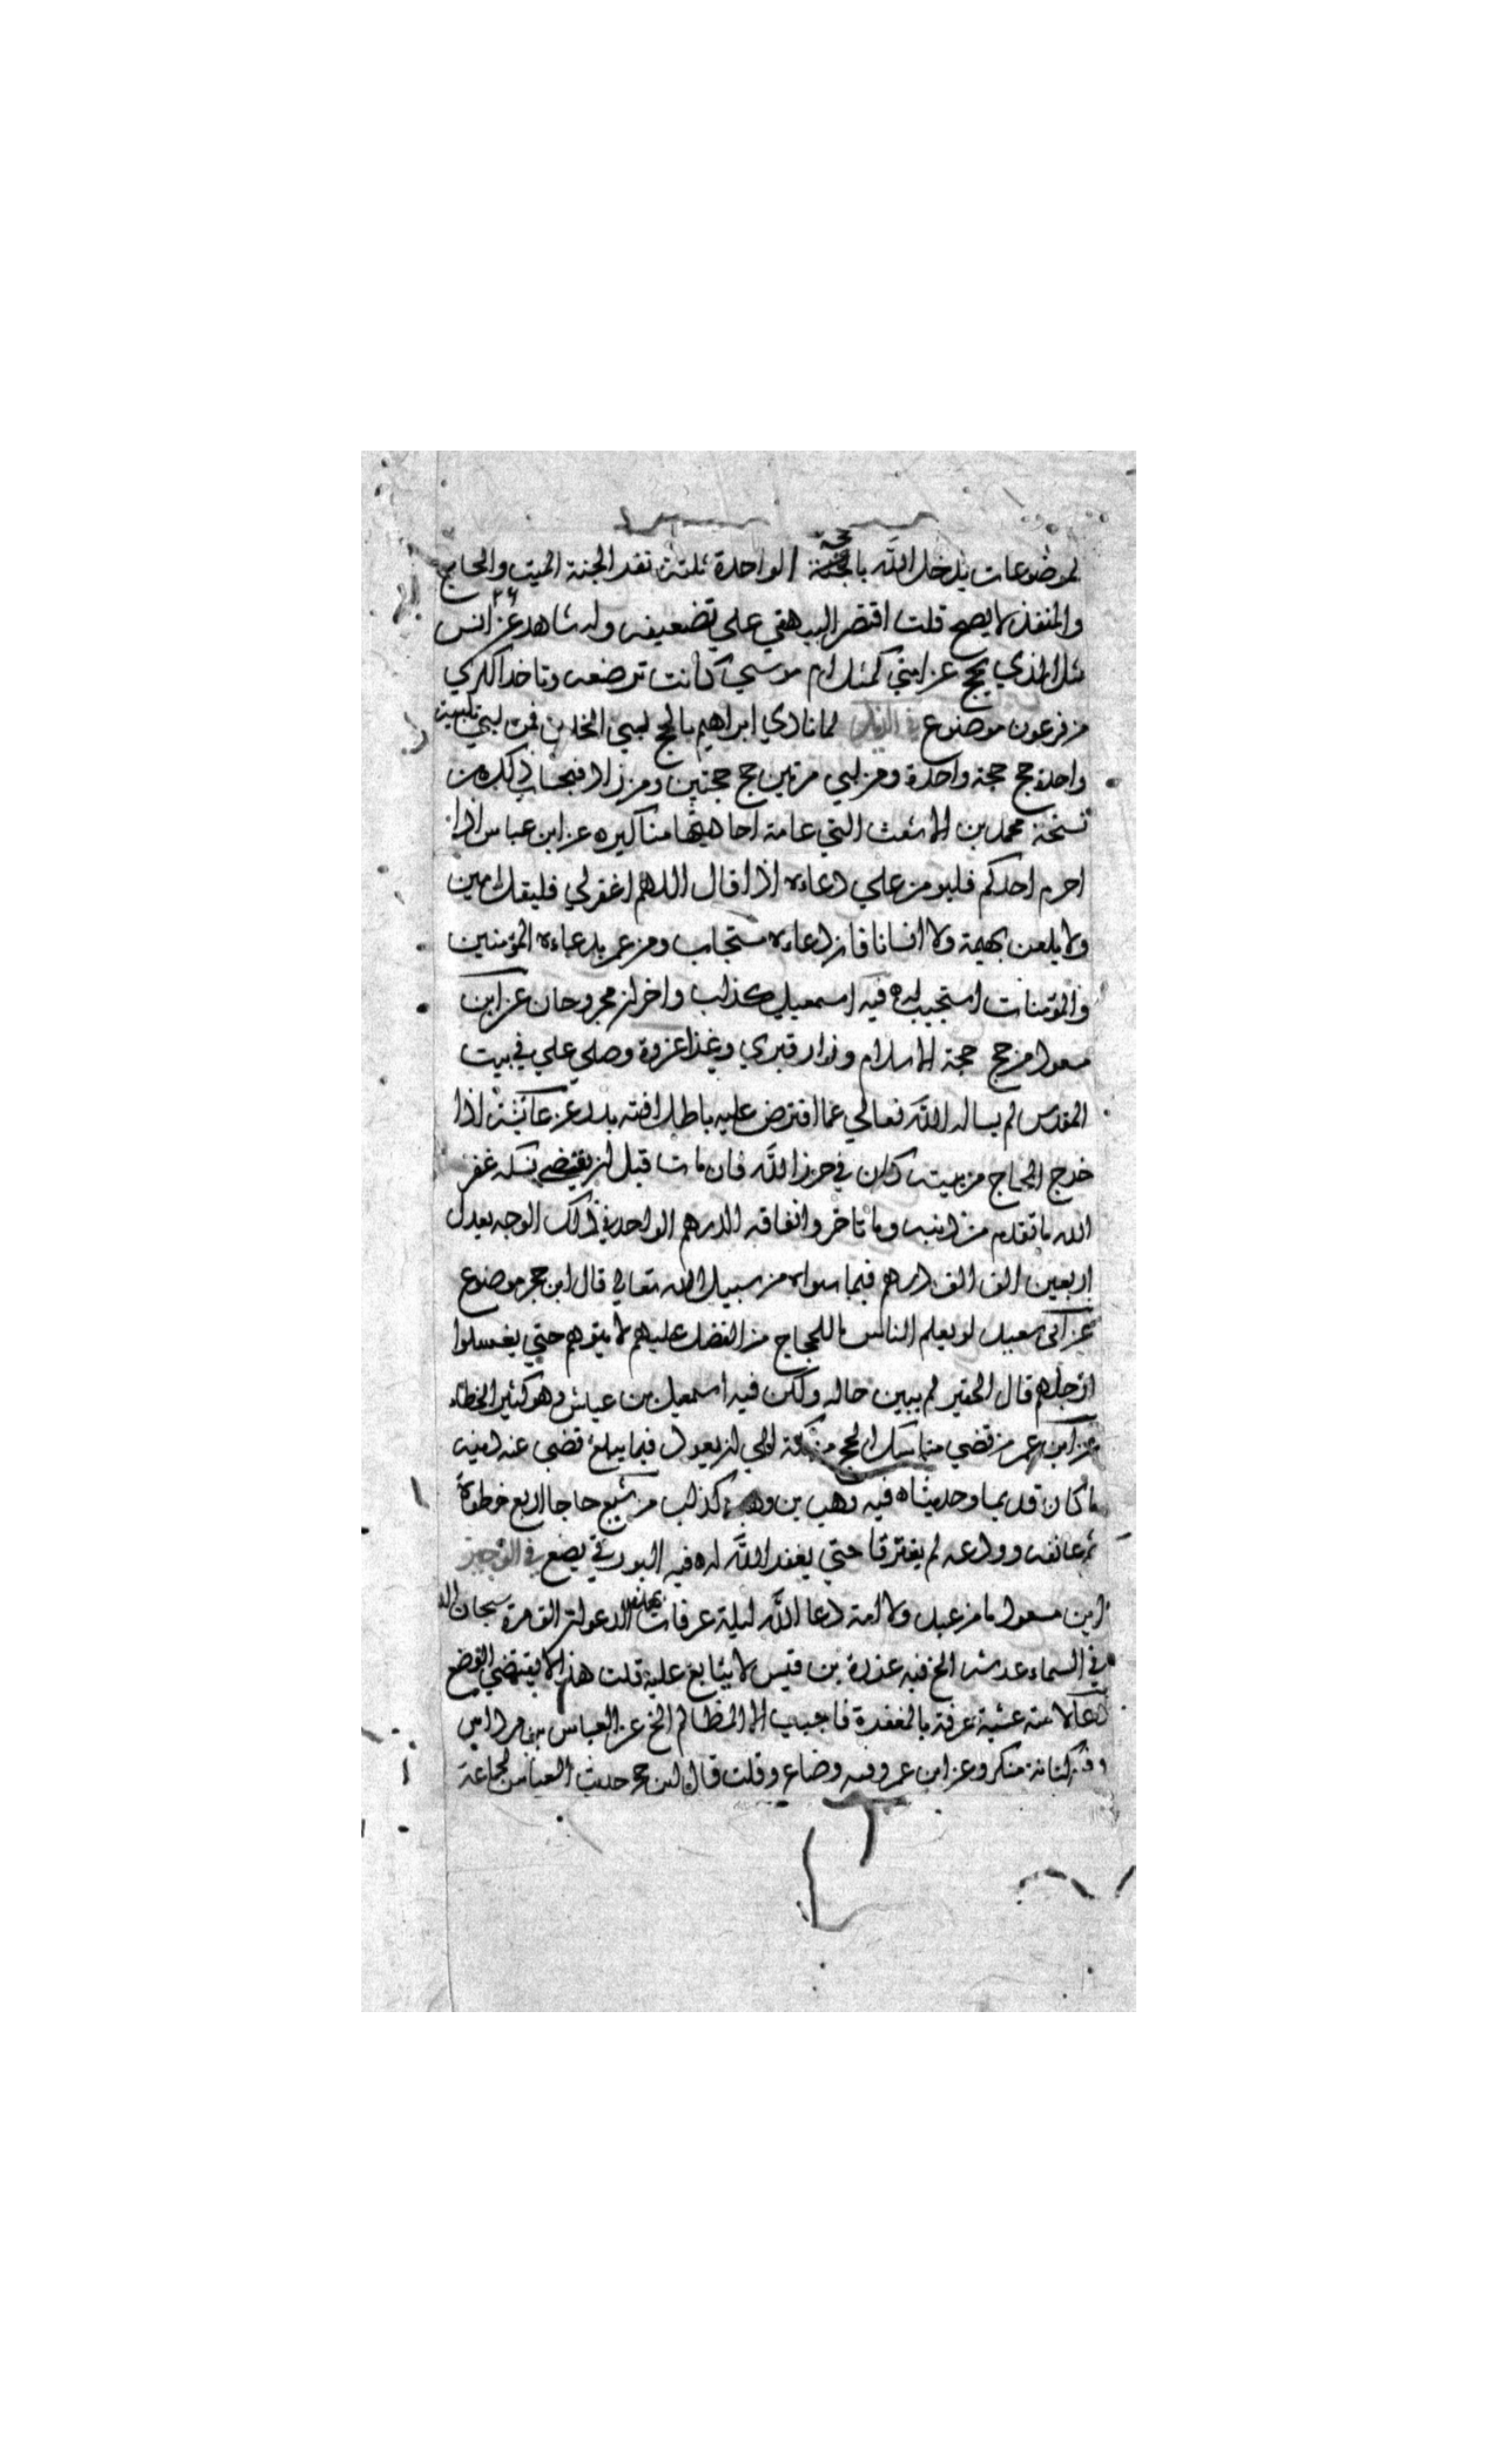 لموضوعات يدخل الله بالحجة الواحدة ثلثة نفر الجنة الميت والحاج
والمنفذ لا يصح قلت اقتصر البيهقي علي تضعيفه وله شاهد عن انس
مثل الذي يحج عن امتي كمثل ام موسي كانت ترضعه وتاخذ الكري
من فرعون موضوع لما نادي ابراهيم بالحج لبي الخلق فمن لبي تلبية
واحدة حج حجة واحدة ومن لبي مرتين حج حجتين ومن زاد فبحساب ذلك من
نسخة محمد بن الاشعث التي عامة احاديثها مناكيره عن ابن عباس اذا
احرم احدكم فليومن علي دعاءه اذا قال اللهم اغفرلي فليقل امين
ولا يلعن بهيمة ولا انسانا فان دعاءه مستجاب ومن عم بدعاءه المؤمنين
والمؤمنات استجيب له فيه اسمعيل كذاب واخران مجروحان عن ابن
مسعود من حج حجة الاسلام وزار قبري وغزا غزوة وصلي علي في بيت
المقدس لم يساله الله تعالي عما افترض عليه باطل افته بدر عن عائشة اذا
خرج الحاج من بيته كان في حرز الله فان مات قبل ان يقضي نسكه غفر
الله ما تقدم من ذنبه وما تاخر وانفاقه الدرهم الواحد في ذلك الوجه يعدل
اربعين الف الف درهم فيما سواه من سبيل الله تعالي قال ابن حجر موضوع
عن ابي سعيد لو يعلم الناس ما للحجاج من الفضل عليهم لاتوهم حتي يغسلوا
ارجلهم قال الحقير لم يبين حاله ولكن فيه اسمعيل بن عياش وهو كثير الخطاء
عن ابن عمر من قضي مناسك الحج من مكة الي ان يعود فيما يبلغ قضي عنه دينه
ما كان قديما وحديثا ه فيه وهب بن وهب كذاب من شيع حاجا اربع خطوة
ثم عانقه وودعه لم يفترقا حتي يغفر الله له فيه البورقي يضع في الوجيز
ابن مسعود ما من عبد ولا امة دعا الله ليلة عرفات بهذه الدعوات الف مرة سبحان الذ
في السماء عرشه الخ فيه عزرة بن قيس لا يتابع عليه قلت هذا لا يقتضي الوضع
دعا لامته عشية عرفة بالمغفرة فاجيب الا المظالم الخ عن العباس بن مرداس
وفيه كنانة منكر وعن ابن عمر وفيه وضاع وقلت قال ابن حجر حديث العباس لجماعة